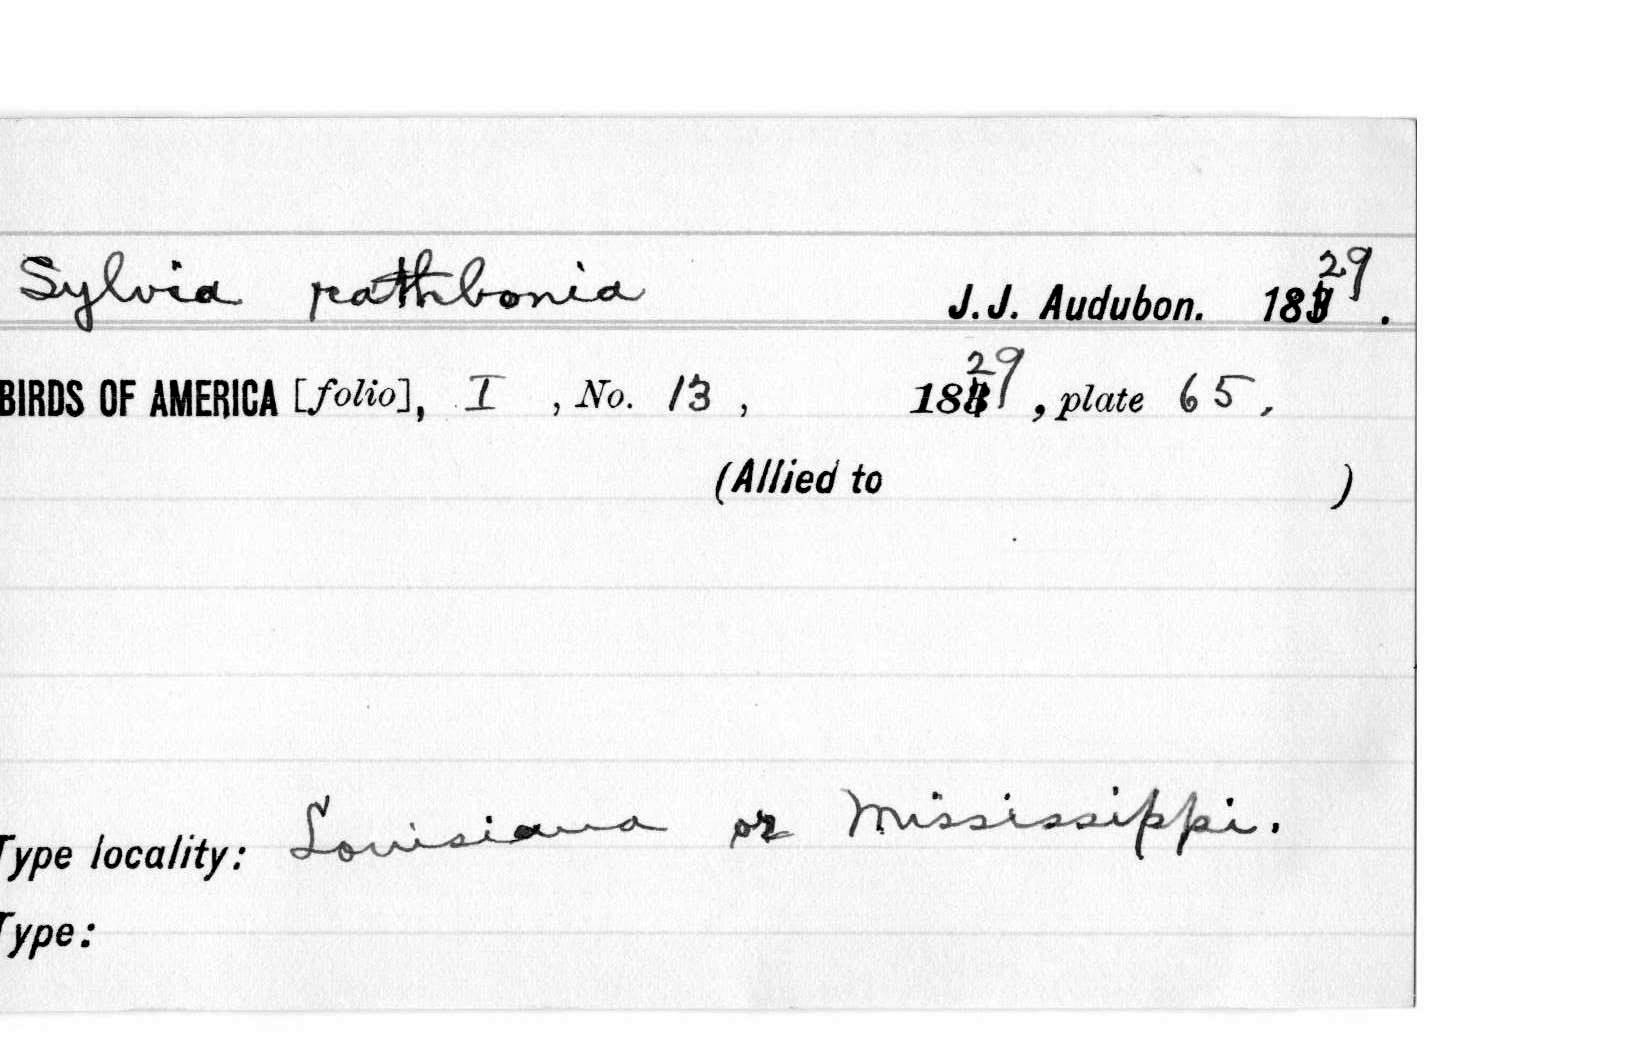 Sylvia rathbonia J. J. Audubon. 1829.
BIRDS OF AMERICA [folio], I , No. 13 , 1829 , plate 65,
(Allied to )
Type locality: Louisiana or Mississippi.
Type: